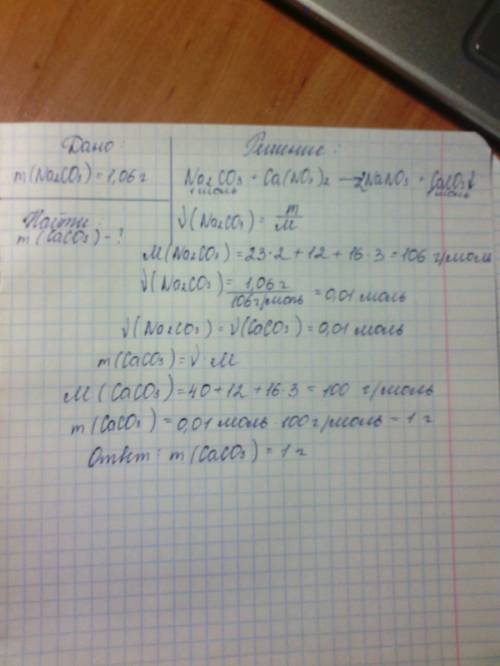 Дано:
m(Na2CO3) = 1,06 г
Найти:
m(CaCO3) - ?
Решение:
Na2CO3 + Ca(NO3)2 → 2NaNO3 + CaCO3↓
1моль 1моль
ν(Na2CO3) = m/M
M(Na2CO3) = 23·2 + 12 + 16·3 = 106 г/моль
ν(Na2CO3) = 1,06 г / 106 г/моль = 0,01 моль
ν(Na2CO3) = ν(CaCO3) = 0,01 моль
m(CaCO3) = ν · M
M(CaCO3) = 40 + 12 + 16·3 = 100 г/моль
m(CaCO3) = 0,01 моль · 100 г/моль = 1 г
Ответ: m(CaCO3) = 1 г